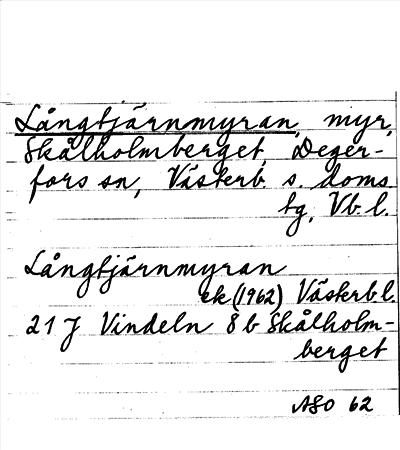 Långtjärnmyran, myr,
Skålholmberget, Deger-
fors sn, Västerb. s. doms.
tg, Vb. l.
Långtjärnmyran
ek (1962) Västerb l.
21 J Vindeln 8 b Skålholm-
berget
ASO 62